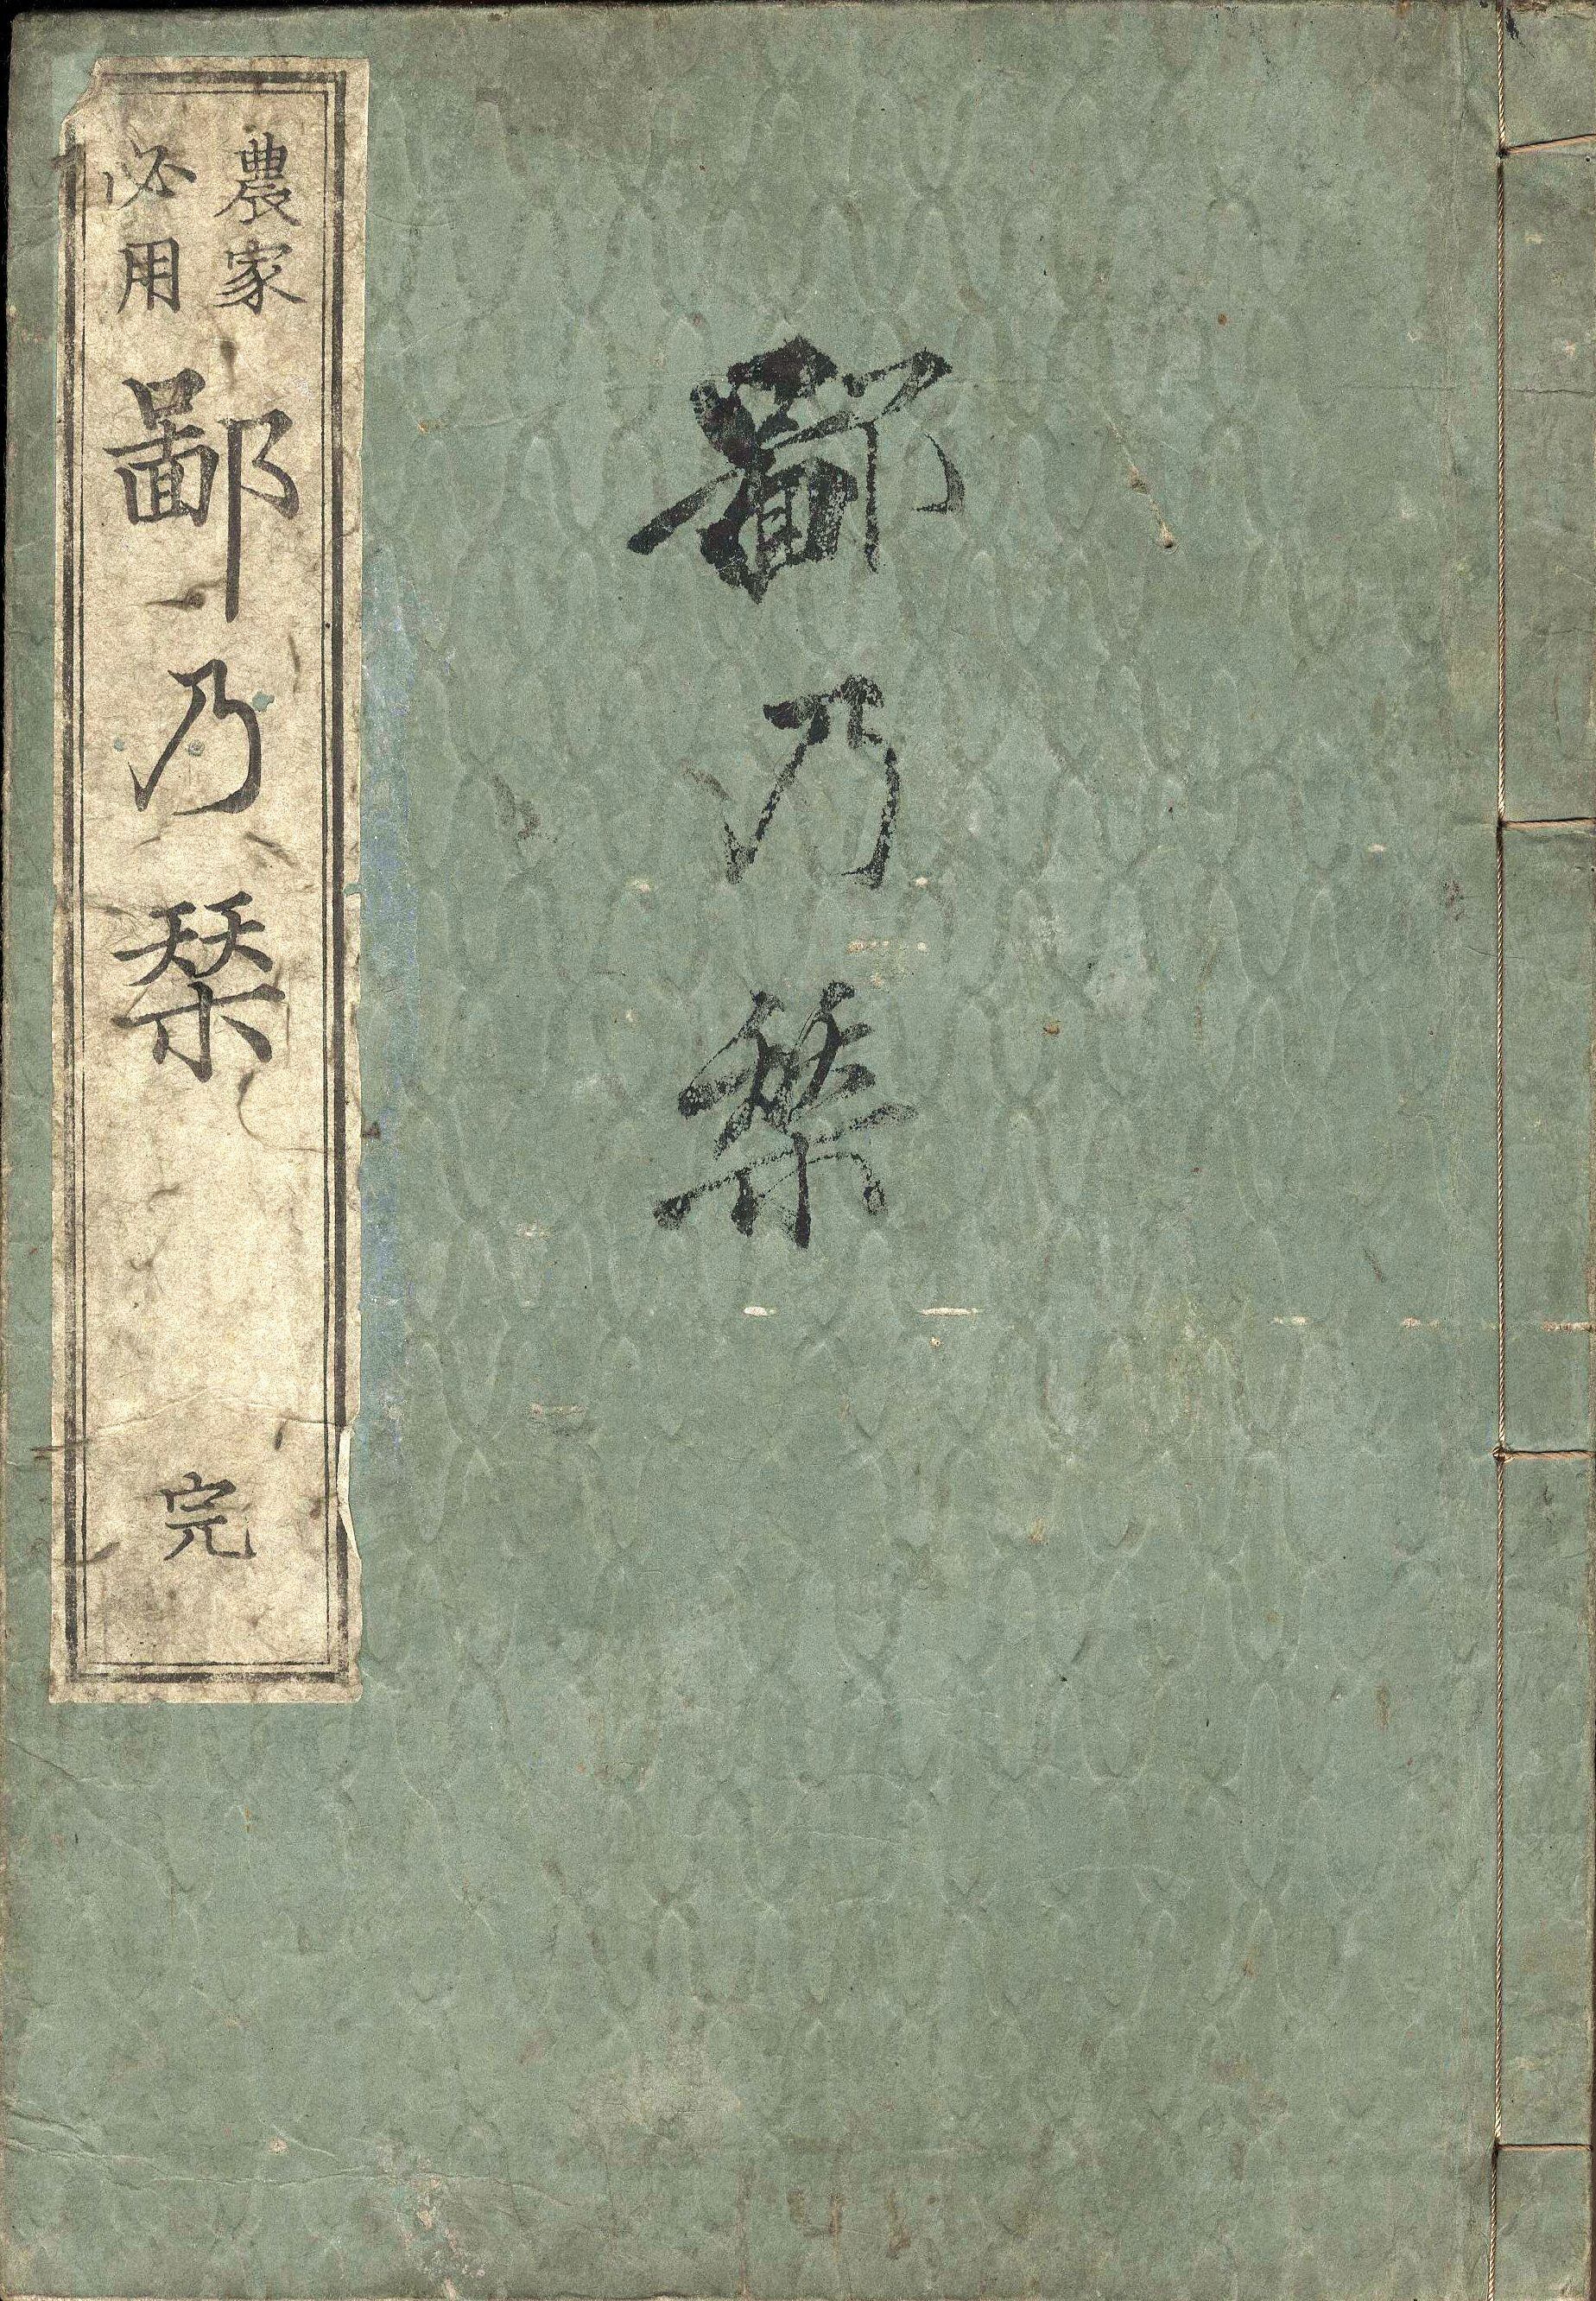 鄙乃栞
農家
必用
鄙乃栞
完